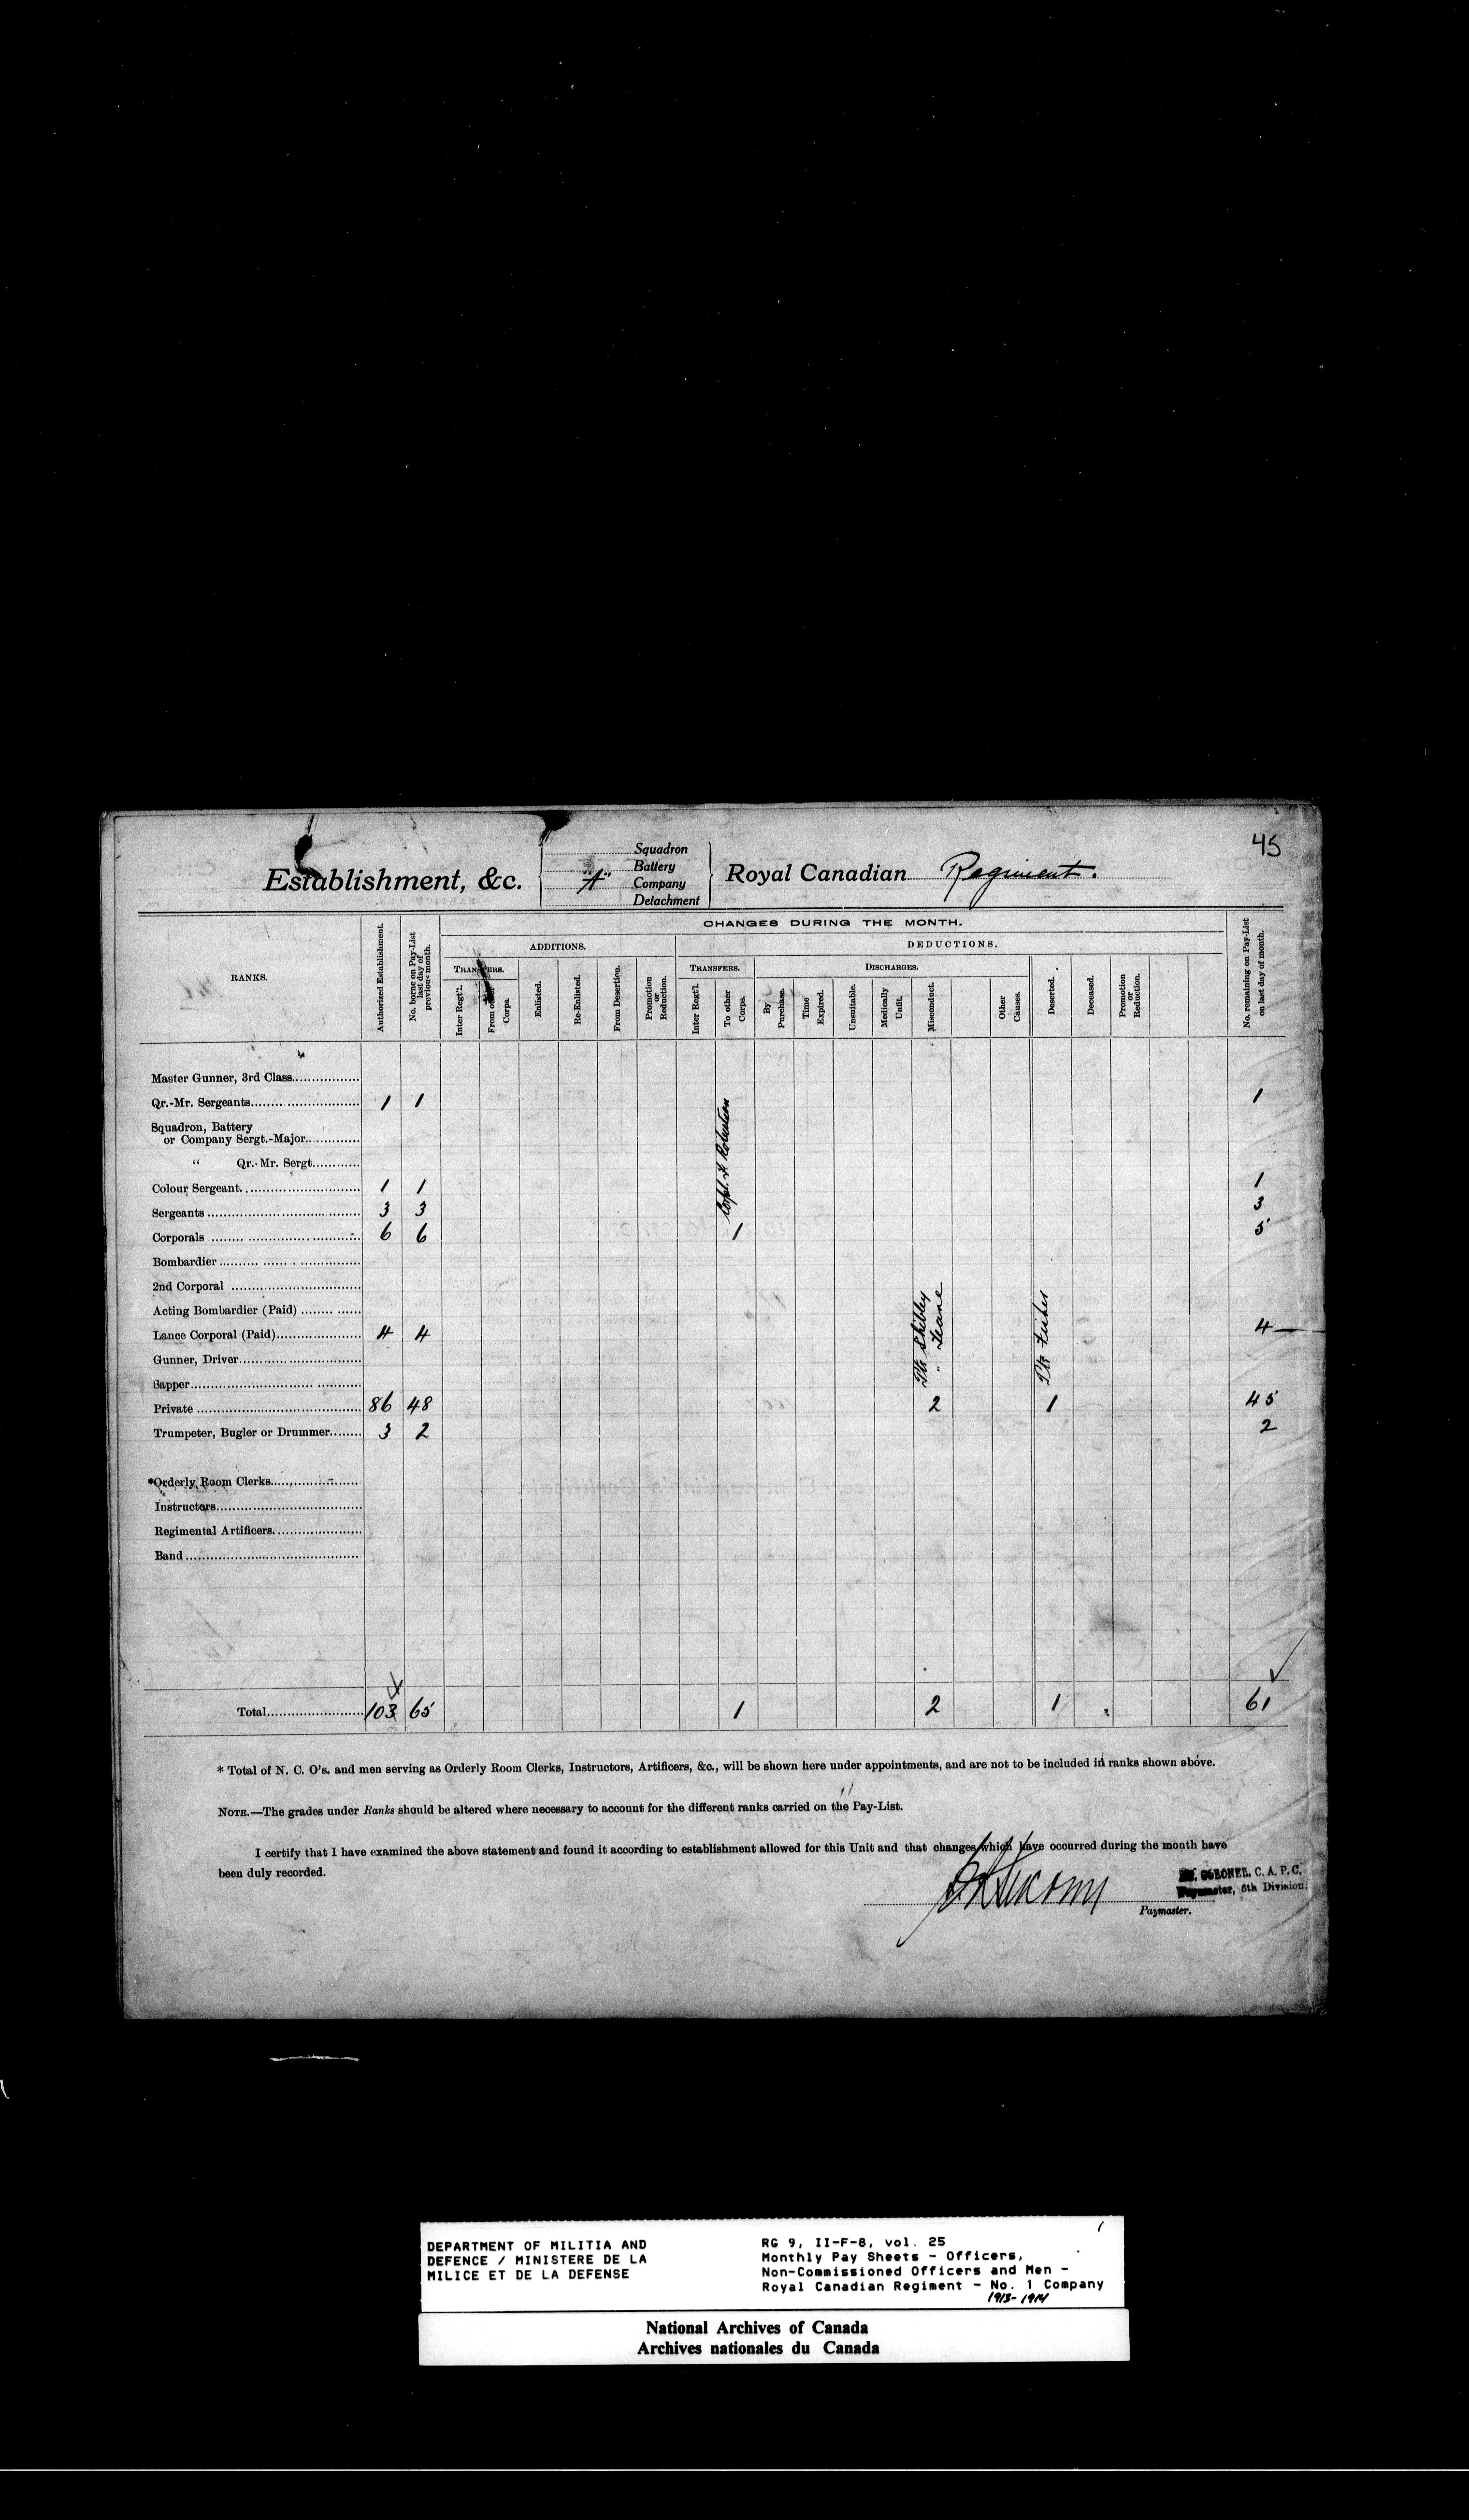 45
Establishment, &c.
Squadron
Battery
"A" Company
Detachment
Royal Canadian Regiment.
RANKS.
Authorized Establishment.
No. borne on Pay-List last day of previous month.
CHANGES DURING THE MONTH.
ADDITIONS.
DEDUCTIONS.
TRANSFERS.
Inter Regt'l.
From other Corps.
Enlisted.
Re-Enlisted.
From Desertion.
Promotion or Reduction.
TRANSFERS.
Inter Reg'tl.
To other Corps.
DISCHARGES.
By Purchase.
Time Expired.
Unsuitable.
Medically Unfit.
Misconduct.
Other Causes.
Deserted.
Deceased.
Promotion or Reduction.
No. remaining on Pay-List on last day of month.
Master Gunner, 3rd Class
Qr.-Mr. Sergeants 1 1 1
Squadron, Battery
or Company Sergt.-Major
" Qr.-Mr. Sergt.
Colour Sergeant 1 1 1
Sergeants 3 3 3
Corpl. Robertson
Corporals 6 6 1 5
Bombardier
2nd Corporal
Acting Bombardier (Paid)
Lance Corporal (Paid) 4 4 4
Gunner, Driver
Sapper
Pte Shibley
"
Pte Fisher
Private 86 48 2 1 45
Trumpeter, Bugler or Drummer 3 2 2
*Orderly Room Clerks
Instructors
Regimental Artificers
Band
Total 103 65 1 2 1 61
* Total of N. C. O's. and men serving as Orderly Room Clerks, Instructors, Artificers, &c., will be shown here under appointments, and are not to be included in ranks shown above.
NOTE.—The grades under Ranks should be altered where necessary to account for the different ranks carried on the Pay-List.
I certify that I have examined the above statement and found it according to establishment allowed for this Unit and that changes which have occurred during the month have
been duly recorded.
COLONEL, C. A. P. C.
Paymaster, 6th Division.
Paymaster.
DEPARTMENT OF MILITIA AND
DEFENCE / MINISTERE DE LA
MILICE ET DE LA DEFENSE
RG 9, II-F-8, vol. 25
Monthly Pay Sheets - Officers,
Non-Commissioned Officers and Men -
Royal Canadian Regiment - No. 1 Company
1913-1914
National Archives of Canada
Archives nationales du Canada